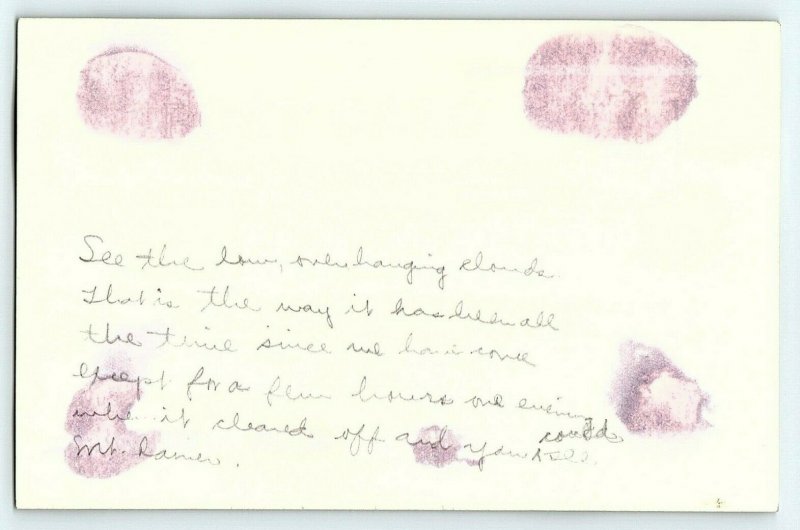 See the low, overhanging clouds.
That is the way it has been all
the time since we have come
except for a few hours one evening
when it cleared off and you could see
Mt. Ranier.